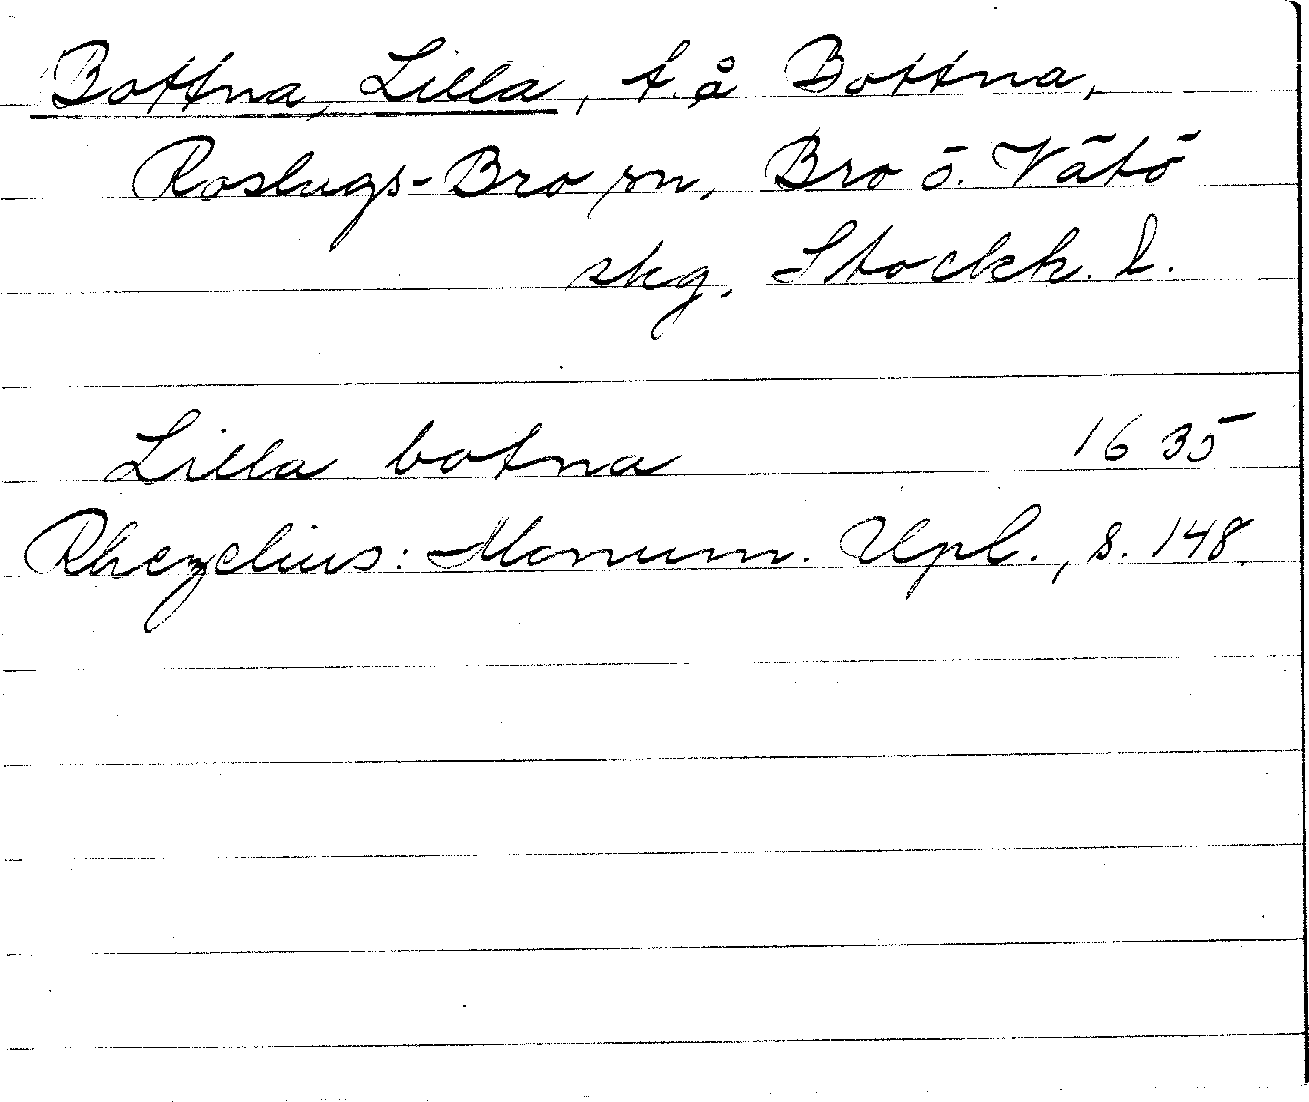 Bottna, Lilla, t. å Bottna,
Roslags-Bro sn, Bro o. Vätö
skg, Stockh. l.
Lilla botna 1635
Rhezelius: Monum. Upl., s. 148.